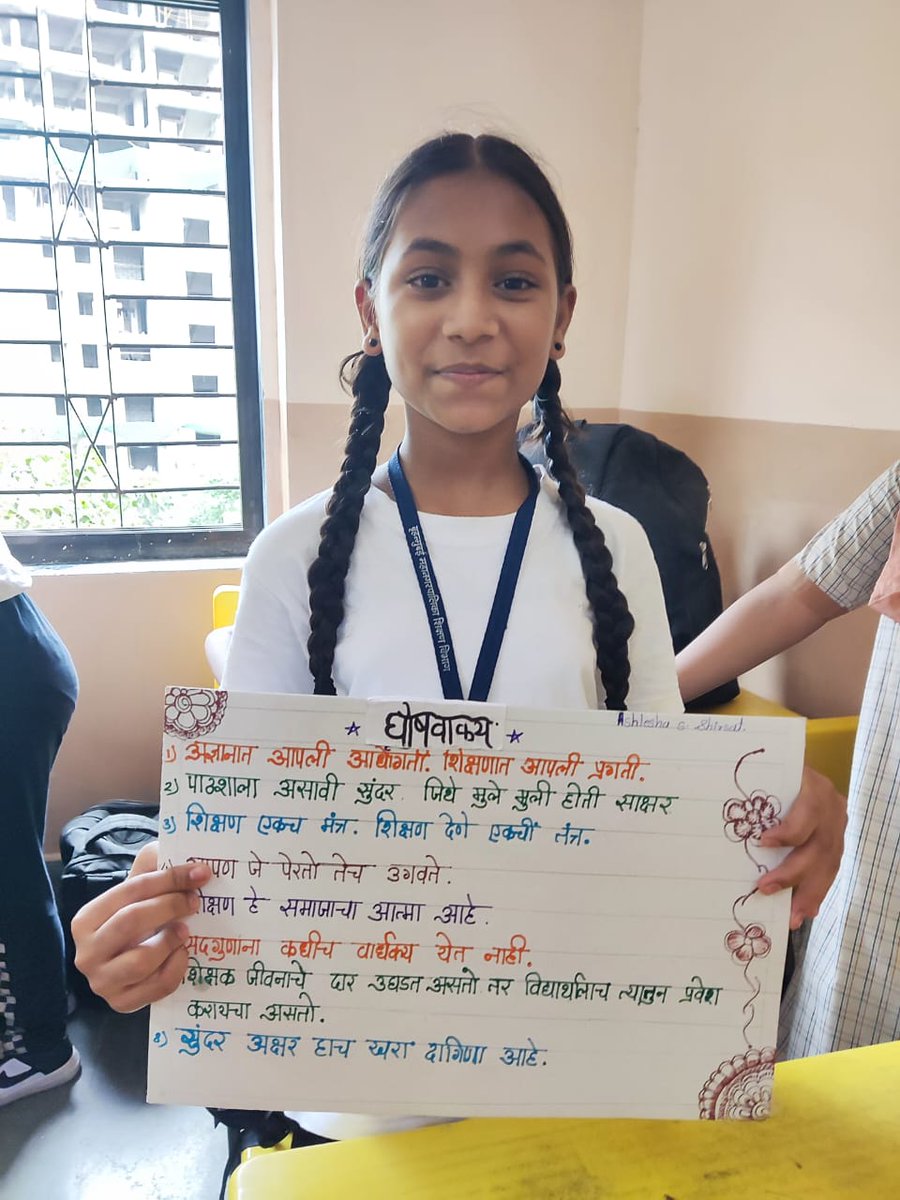 बृहन्मुंबई महानगरपालिका शिक्षण विभाग
घोषवाक्य
Ashlesha S. Shirsat.
1) अज्ञानात आपली अधोगती. शिक्षणात आपली प्रगती.
2) पाठशाला असावी सुंदर जिथे मुले मुली होती साक्षर
3) शिक्षण एकच मंत्र. शिक्षण देणे एकची तंत्र.
जे पेरतो तेच उगवते.
हे समाजाचा आत्मा आहे.
सदगुणांना कधीच वार्धक्य येत नाही.
शिक्षक जीवनाचे दार उघडत असतो तर विद्यार्थ्यालाच त्यातून प्रवेश
करायचा असतो.
8) सुंदर अक्षर हाच खरा दागिणा आहे.